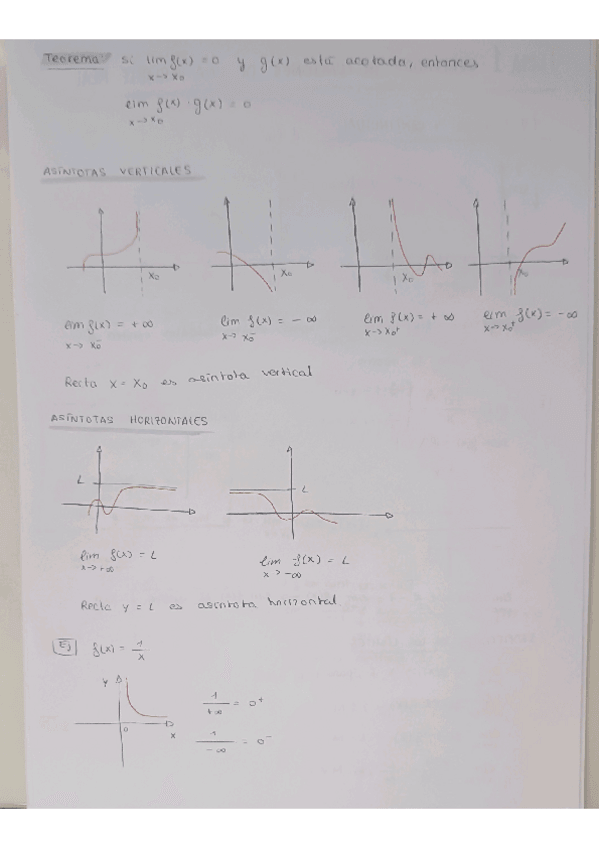 Teorema: si lim f(x) = 0 y g(x) está acotada, entonces
x→x₀
lim f(x) · g(x) = 0
x→x₀
ASÍNTOTAS VERTICALES
x₀ x₀ x₀ x₀
lim f(x) = +∞ lim f(x) = -∞ lim f(x) = +∞ lim f(x) = -∞
x→x₀⁻ x→x₀⁻ x→x₀⁺ x→x₀⁺
Recta x = x₀ es asíntota vertical
ASÍNTOTAS HORIZONTALES
L L
lim f(x) = L lim f(x) = L
x→+∞ x→-∞
Recta y = L es asíntota horizontal
Ej f(x) = 1/x
y
0
x
1/+∞ = 0⁺
1/-∞ = 0⁻